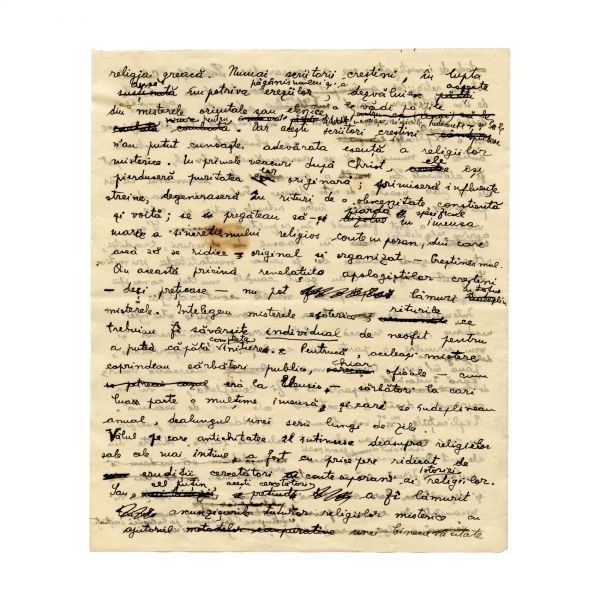 religia greacă. Numai scriitorii creștini, în lupta
susținută împotriva păgânismului și a ereziilor, desvăluie aspecte
din misterele orientale sau elenice
Dar acești scriitori creștini
n'au putut cunoaște adevărata esență a religiilor
misterice. În primele veacuri după Christ, ele își
pierduseră puritatea originară; primiseră influențe
streine, degeneraseră în rituri de o obscenitate conștientă
și voită; se pregăteau să-și piardă specificul în imensa
mare a sincretismului religios contemporan, din care
avea să se ridice original și organizat – Creștinismul.
Din această pricină revelațiile apologiștilor creștini
– deși prețioase – nu pot lămuri
misterele. Înțelegem misterele esoterice riturile ce
trebuiau săvârșite individual de neofit pentru
a putea căpăta completa inițiere. Pentrucă, aceleași mistere
cuprindeau sărbători publice, chiar oficiale cum
era la Eleusis – sărbători la cari
luau parte o mulțime imensă, și cari se îndeplineau
anual, dealungul unei serii lungi de zile.
Vălul pe care antichitatea îl întinsese deasupra religiilor
sale cele mai intime, a fost cu pricepere ridicat de
erudiții cercetători contemporani ai istoriei religiilor.
Sau, cel puțin, acești cercetători pretind a fi lămurit
ascunzișurile tuturor religiilor misterice cu
ajutorul metodelor comparative unei binecuvântate